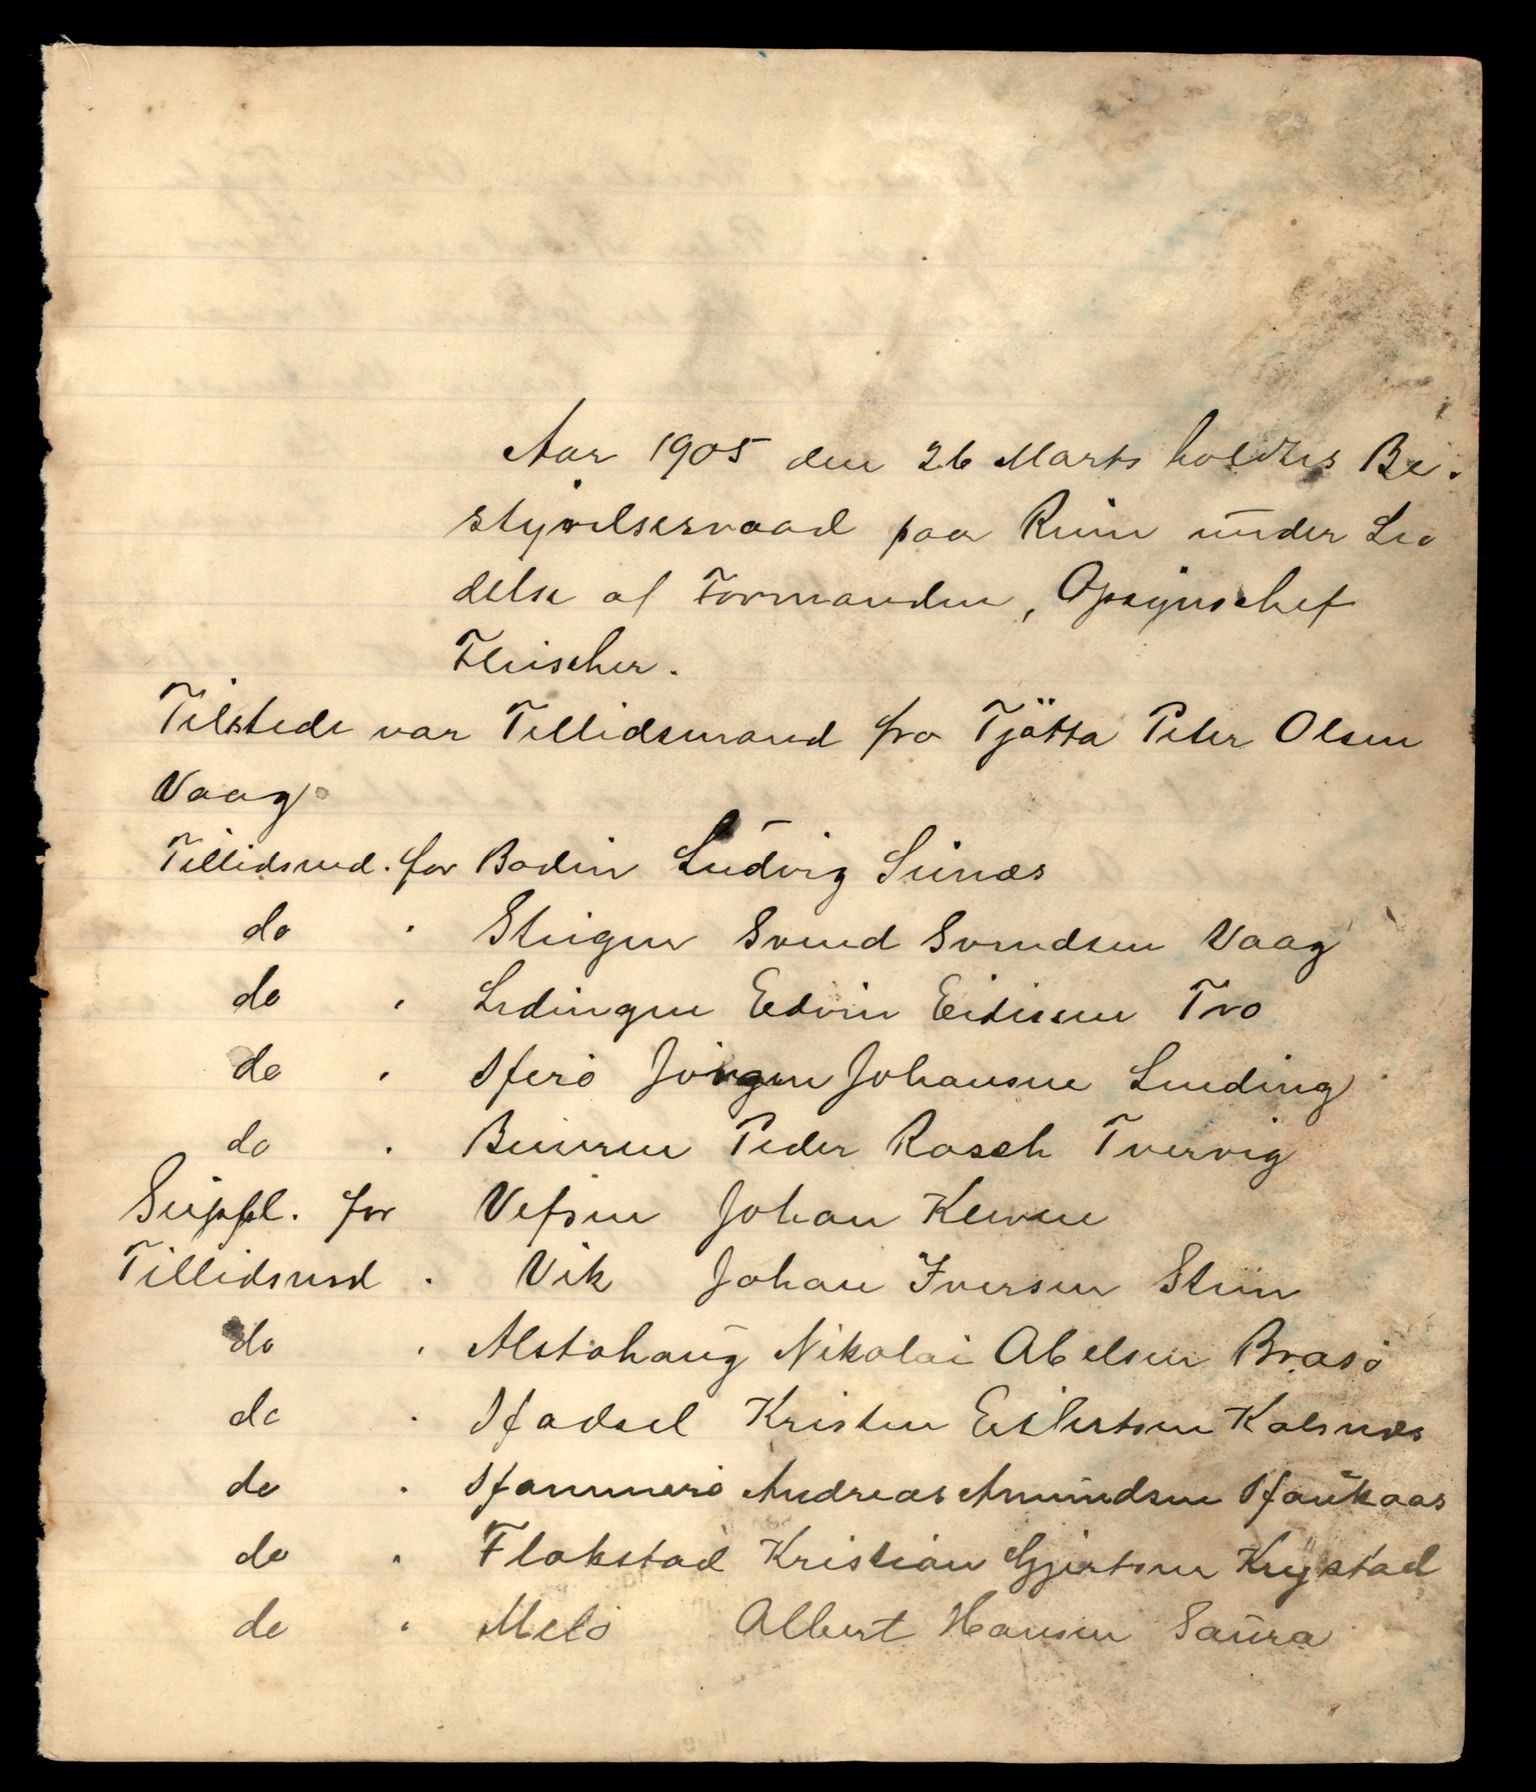 Aar 1905 den 26 Marts holdtes Be-
styrelsesraad paa Reine under Le-
delse af Formanden, Opsynschef
Fleischer.
Tilstede var Tillidsmand fra Tjøtta Peter Olsen
Vaag.
Tillidsmd. for Bodin Ludvig Seines
do " Steigen Svend Svendsen Vaag
do " Lødingen Edvin Edissen Tro
do " Herö Jörgen Johansen Sneding
do " Beieren Peder Rasch Tvervig
Suppl. for Vefsen Johan Kleven
Tillidsmd " Vik Johan Iversen Stein
do " Alstahaug Nikolai Abelsen Brasö
do " Hadsel Kristen Eilertsen Kalsnæs
do " Hammerö Andreas Amundsen Haukaas
do " Flakstad Kristian Gjertsen Krystad
do " Melö Albert Hansen Saura